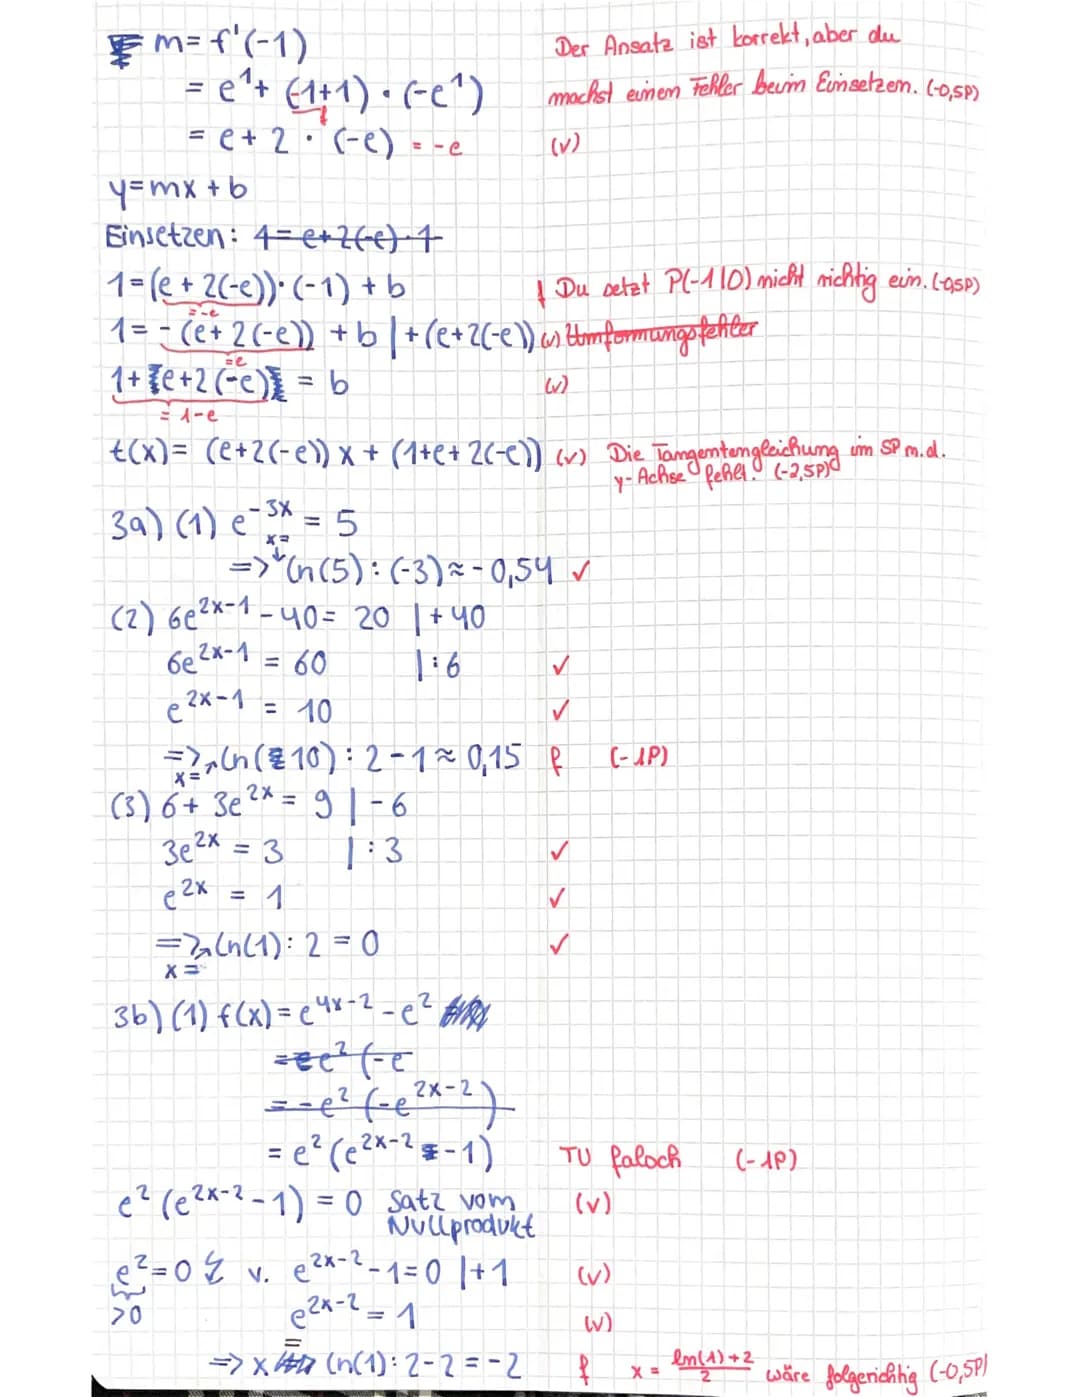 m = f'(-1) Der Ansatz ist korrekt, aber du
= e^1 + (-1+1) · (-e^1) f machst einen Fehler beim Einsetzen. (-0,5P)
= e + 2 · (-e) = -e (v)
y = mx + b
Einsetzen: 1 = e+2(-e)·1
1 = (e + 2(-e)) · (-1) + b f Du setzt P(-1|0) nicht richtig ein. (-0,5P)
= -e
1 = - (e + 2(-e)) + b | + (e+2(-e)) (v) Umformungsfehler
= e
1 + (e+2(-e)) = b (v)
= 1-e
t(x) = (e+2(-e)) x + (1+e+2(-e)) (v) Die Tangentengleichung im SP m.d.
y-Achse fehlt. (-2,5P)
3a) (1) e^{-3x} = 5
x =
=> ln(5) : (-3) ≈ -0,54 ✓
(2) 6e^{2x-1} - 40 = 20 | + 40
6e^{2x-1} = 60 | : 6 ✓
e^{2x-1} = 10 ✓
=> x = ln(10) : 2 - 1 ≈ 0,15 f (-1P)
(3) 6 + 3e^{2x} = 9 | - 6
3e^{2x} = 3 | : 3 ✓
e^{2x} = 1 ✓
=> x = ln(1) : 2 = 0 ✓
3b) (1) f(x) = e^{4x-2} - e^2
= e^2 (-e
= -e^2 (-e^{2x-2})
= e^2 (e^{2x-2} - 1) TU falsch (-1P)
e^2 (e^{2x-2} - 1) = 0 Satz vom (v)
Nullprodukt
e^2 = 0 ↯ v. e^{2x-2} - 1 = 0 | + 1 (v)
>0 e^{2x-2} = 1 (v)
=> x = ln(1) : 2 - 2 = -2 f x = \frac{ln(1)+2}{2} wäre folgerichtig (-0,5P)